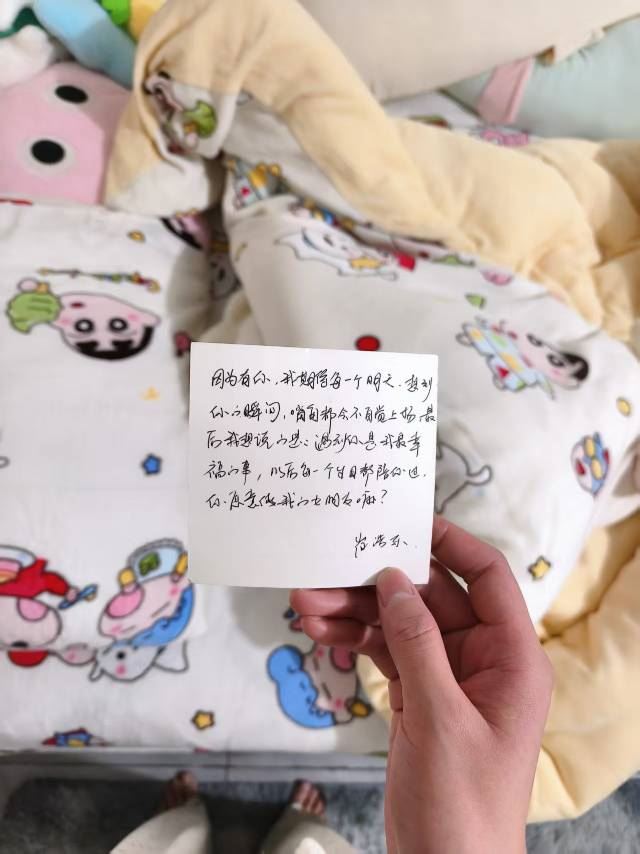 因为有你，我期待每一个明天．想到
你的瞬间，嘴角都会不自觉上扬．最
后我想说的是：遇到你是我最幸
福的事，以后每一个生日都陪你过．
你愿意做我的女朋友嘛？